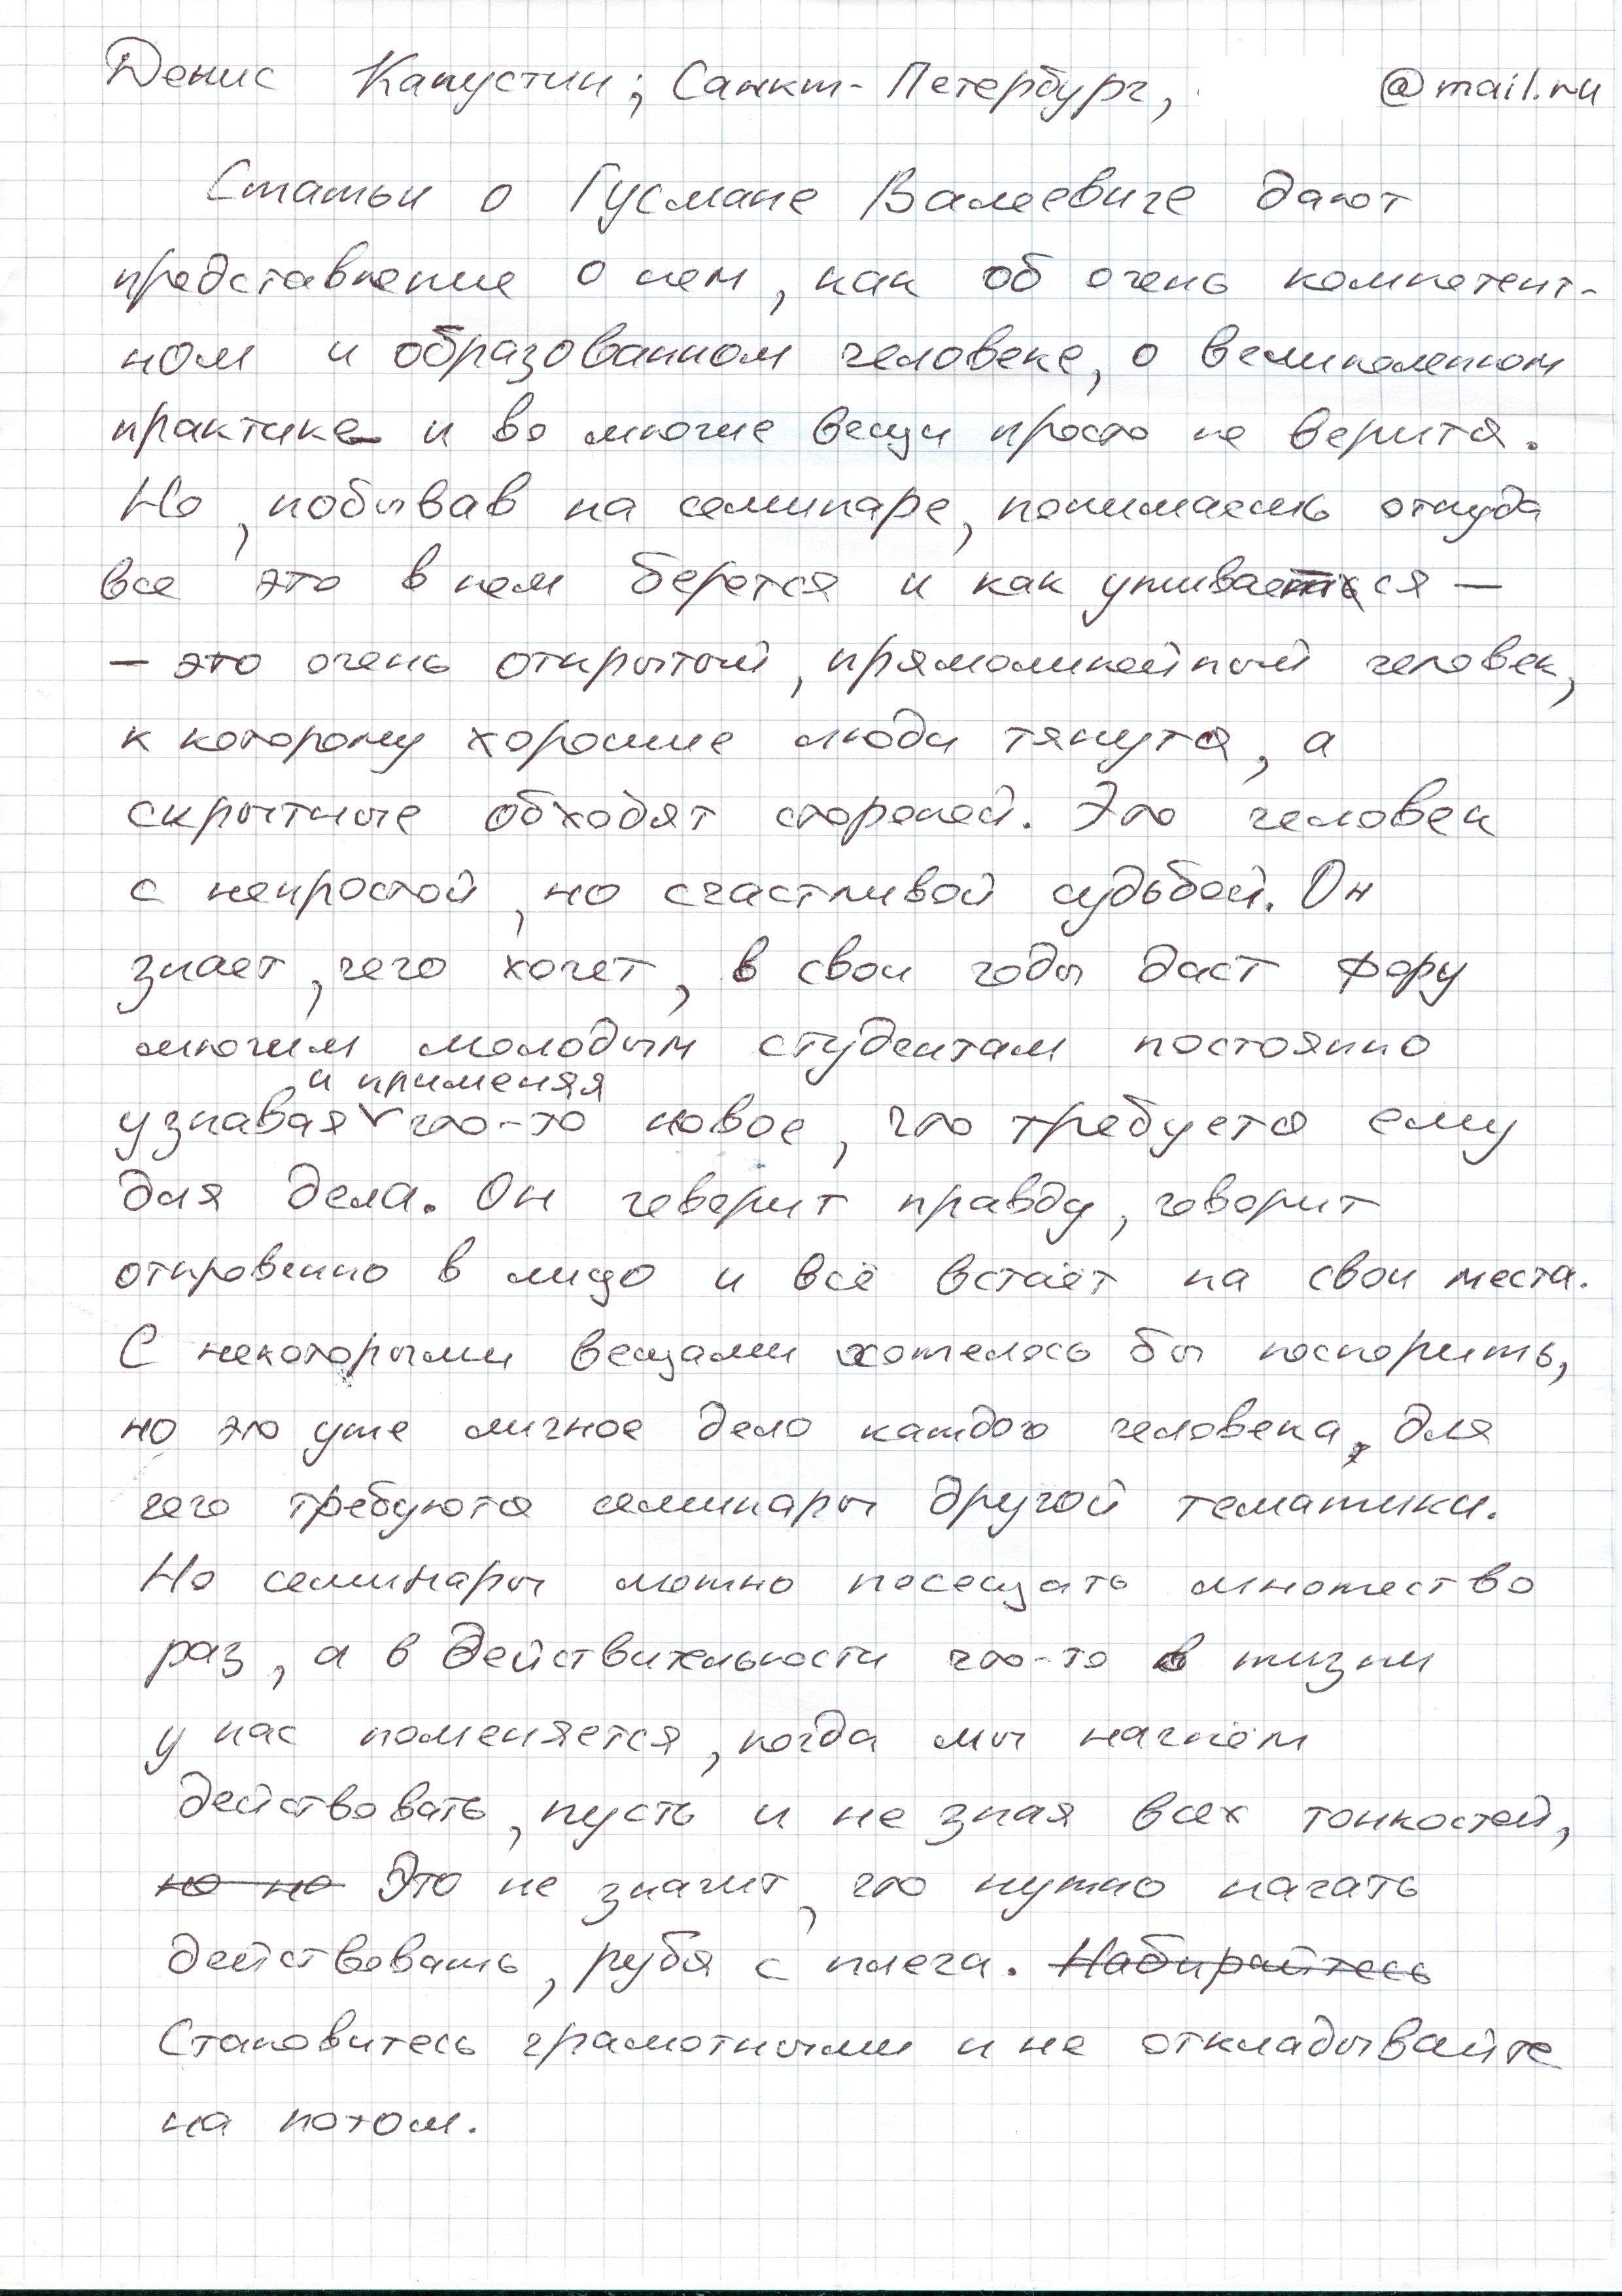 Денис Капустин; Санкт-Петербург, @mail.ru
Статьи о Гусмане Валеевиче дают
представление о нем, как об очень компетент-
ном и образованном человеке, о великолепном
практике и во многие вещи просто не верится.
Но, побывав на семинаре, понимаешь откуда
все это в нем берется и как уживается —
— это очень открытый, прямолинейный человек,
к которому хорошие люди тянутся, а
скрытные обходят стороной. Это человек
с непростой, но счастливой судьбой. Он
знает, чего хочет, в свои годы даст фору
многим молодым студентам постоянно
и применяя
узнавая что-то новое, что требуется ему
для дела. Он говорит правду, говорит
откровенно в лицо и всё встаёт на свои места.
С некоторыми вещами хотелось бы поспорить,
но это уже личное дело каждого человека, для
чего требуются семинары другой тематики.
Но семинары можно посещать множество
раз, а в действительности что-то в жизни
у нас поменяется, когда мы начнём
действовать, пусть и не зная всех тонкостей,
но но Это не значит, что нужно начать
действовать, рубя с плеча. Набирайтесь
Становитесь грамотными и не откладывайте
на потом.